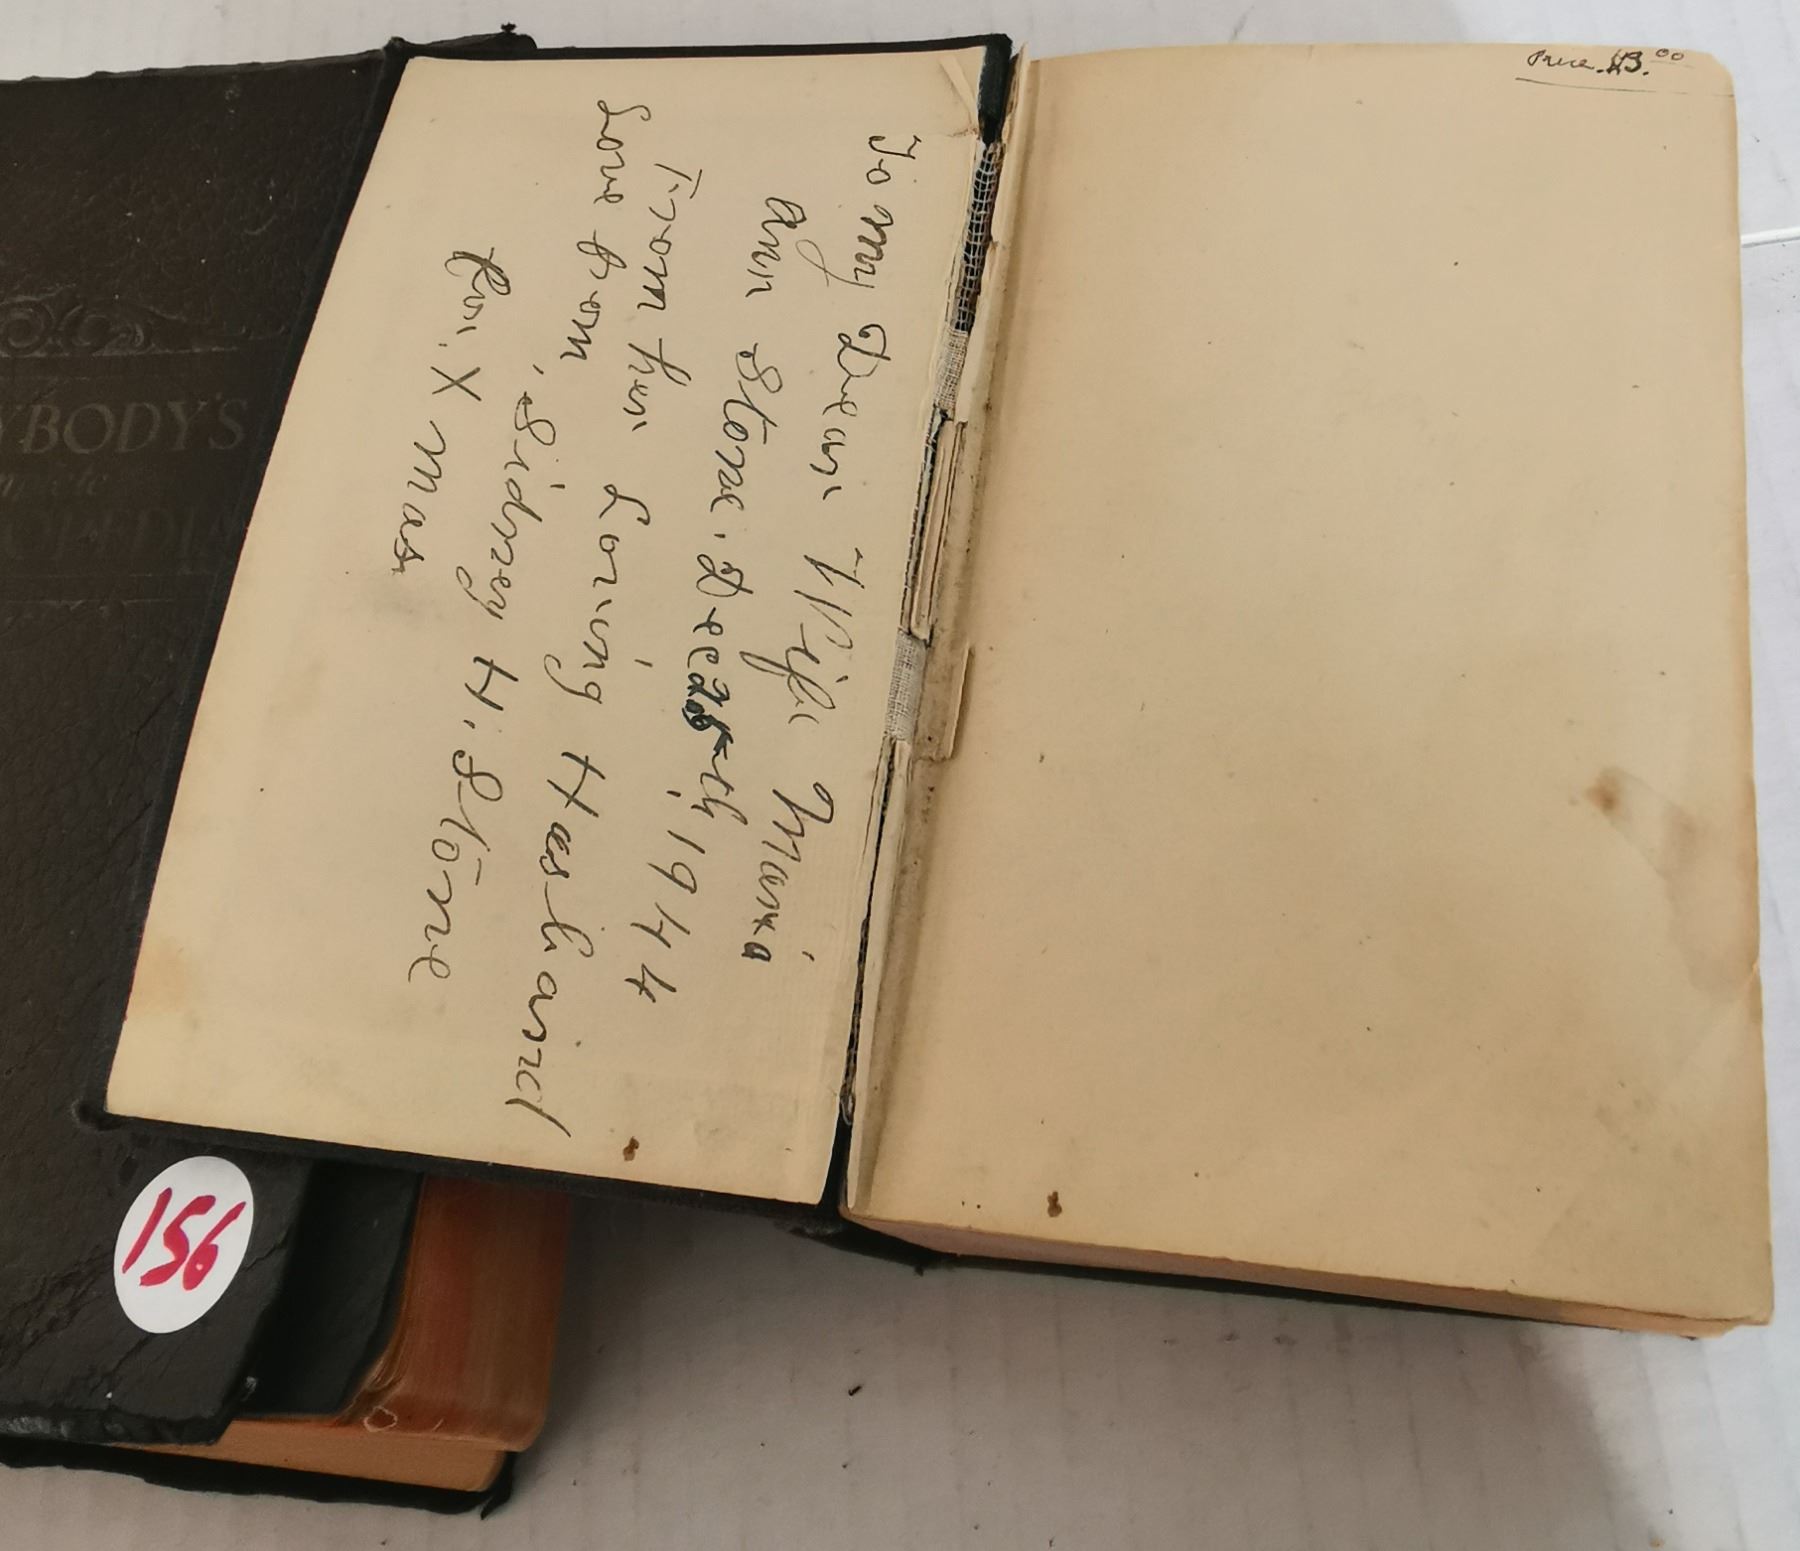 To my Dear Wife Maria
Ann Stone. Dec 25th, 1944
From her Loving Husband
Love from, Sidney H. Stone
For. X mas
Price.
YBODY'S
OPEDI
156